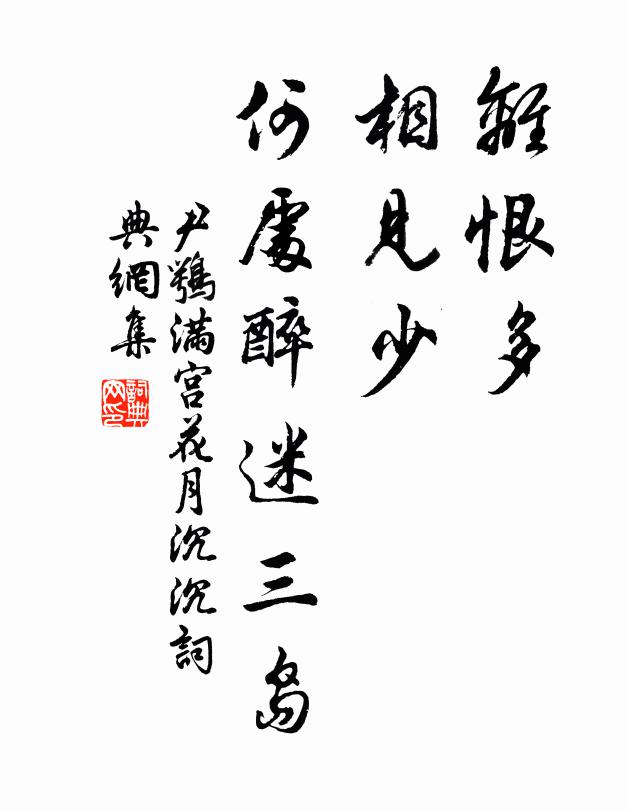 離恨多
相見少
何處醉迷三島
尹鶚滿宮花月沉沉詞
典網集
詞典網印